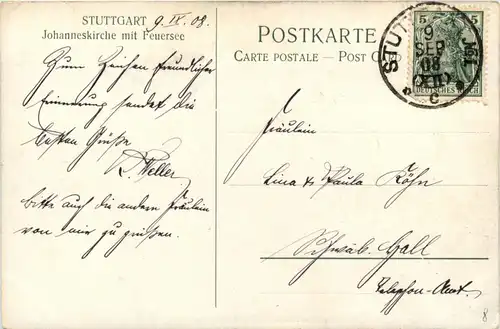 STUTTGART 9. IX. 08.
Johanneskirche mit Feuersee
Zum Zeichen freundlicher
Erinnerung sendet die
besten Grüße
Weller
bitte auch die andern Fräulein
von mir zu grüßen.
POSTKARTE
CARTE POSTALE — POST CARD
STUTTGART
9
SEP
08
XII
C
5 5
DEUTSCHES REICH
Fräulein
Lina & Paula Köhn
Schwäb. Hall
Telephon-Amt.
8